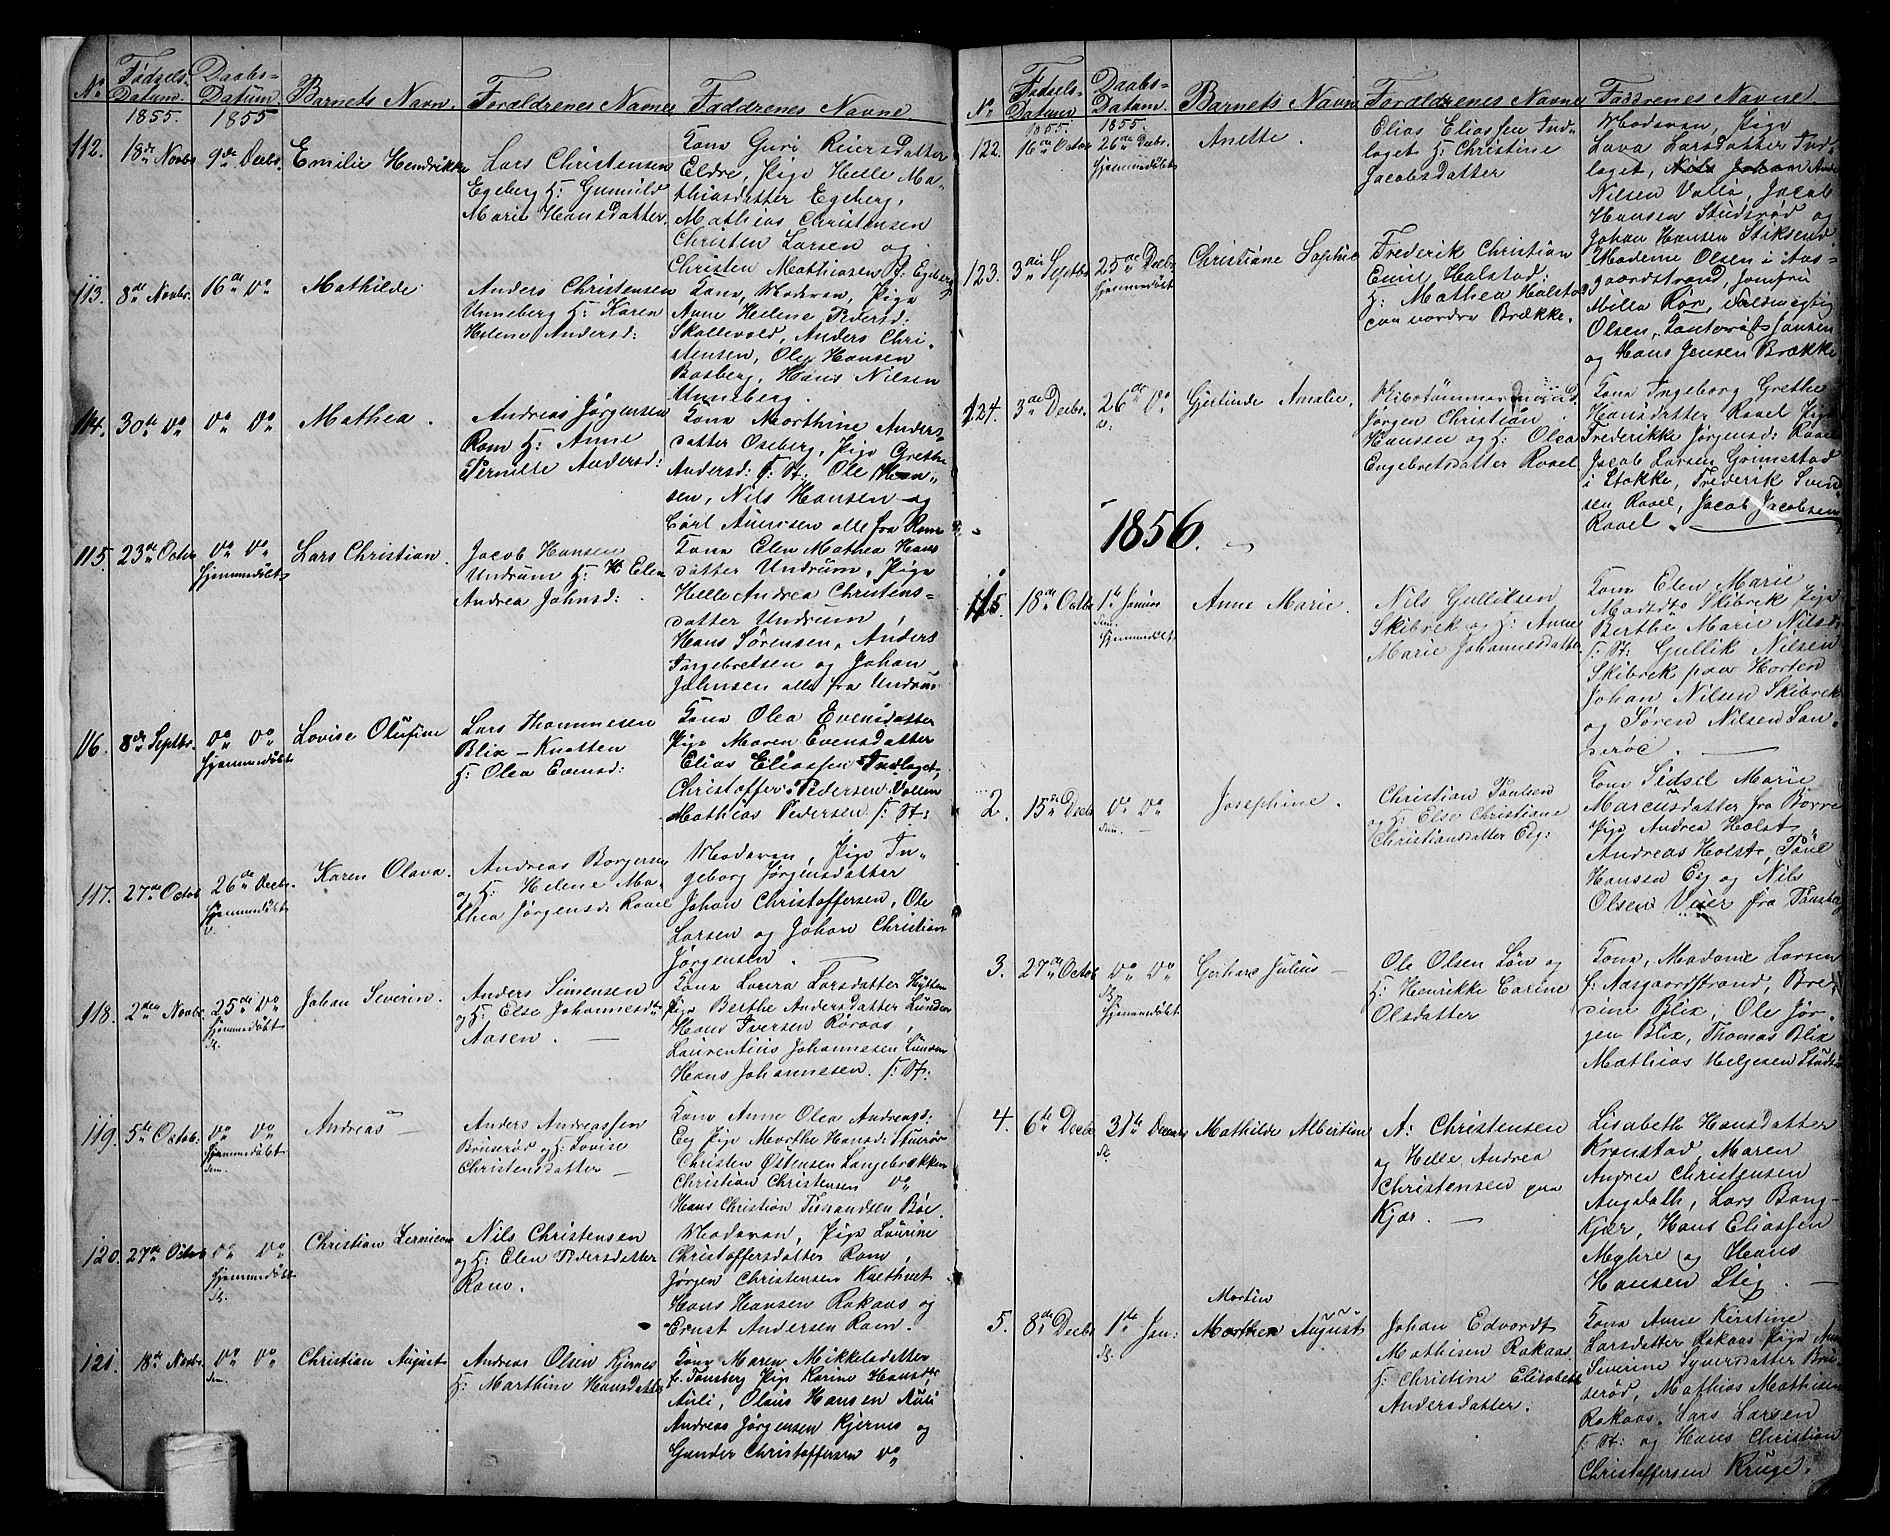 No Fødsels- Datum. Daabs- Datum Barnets Navn. Forældrenes Navne Faddrenes Navne
1855. 1855
112. 18de Novbr. 9de Decbr. Emilie Hendrikke
Lars Christensen
Egeberg H: Gunnild
Marie Hansdatter
Kona Guri Reiersdatter
Eldre, Pige Helle Ma-
thiasdatter Egeberg,
Mathias Christensen
Christen Larsen og
Christen Mathiasen H: Egeberg
113. 8de Novbr. 16de Do Mathilde
Anders Christensen
Unneberg H: Karen
Helene Andersd:
Kona, Moderen, Pige
Anne Helene Pedersd:
Skallevold, Anders Chri-
stensen, Ole Hansen
Basberg, Hans Nilsen
Unneberg.
114. 30te Do Do Do Mathea.
Andreas Jørgensen
Rom H: Anne
Pernille Andersd:
Kona Marthine Anders-
datter Oseberg, Pige Grethe
Andersd: f. St. Ole Han-
sen, Nils Hansen og
Carl Aunesen alle fra Rom
115. 23de Octbr Do Do Lars Christian.
hjemmedøbt
Jacob Hansen
Undrum H: Elen
Andrea Johnsd:
Kona Elen Mathea Hans
datter Undrum, Pige
Helle Andrea Christens-
datter Undrum,
Hans Sørensen, Anders
Ingebretsen og Johan
Johnsen alle fra Undrum
116. 8de Septbr. Do Do Lovise Olufine
hjemmedøbt
Lars Thommesen
Blix - Knatten
H: Olea Evensd:
Kona Olea Evensdatter
Pige Maren Evensdatter
Elias Eliassen Indlaget,
Christoffer Pedersen Vollen
Mathias Pedersen f. St:
117. 27de Octob 26de Decbr. Karen Olava.
hjemmedøbt
Andreas Borgersen
og H: Helene Ma-
thea Jørgensd: Ravel
Moderen, Pige In-
geborg Jørgensdatter
Johan Christoffersen, Ole
Larsen og Johan Christian
Jørgensen.
118. 2den Novbr. 25de Do Johan Severin.
hjemmedøbt
Anders Simensen
og H: Else Johannesd:
Aasen.
Kona Laura Larsdatter Hytten
Pige Berthe Andersdatter Lunden
Hans Iversen Røraas,
Laurentius Johannesen Lunden
Hans Johannesen f. St.
119. 5te Octob. Do Do Andreas
hjemmedøbt
Anders Andreassen
Bruserød og H: Lovise
Christensdatter
Kona Anne Olea Andreasd:
Eeg Pige Marthe Hansd:
Christen Østensen Langebrækken
Christian Christensen Do
Hans Christian Tidemandsen Bøe.
120. 27de Octob Do Do Christian
hjemmedøbt
Nils Christensen
og H: Elen Pedersdatter
Rom.
Moderen, Pige Laurine
Christoffersdatter Rom,
Jørgen Christensen
Hans Hansen Rakaas og
Ernst Andersen Rom.
121. 18de Novbr. Do Do Christian August
Andreas Olsen Kjernes
H: Marthine Hansdatter
Kona Maren Mikkelsdatter
f. Tønsberg Pige Karine Hansd:
Auli, Olaus Hansen Auli
Andreas Jørgensen Kjernes og
Gunder Christoffersen Do
No Fødsels- Datum Daabs- Datum. Barnets Navn Forældrenes Navne Faddrenes Navne
1855. 1855.
122. 16de Octob 26de Decbr. Anette.
hjemmedøbt
Elias Eliassen Ind-
laget H: Christine
Jacobsdatter
Moderen, Pige
Lava Larsdatter Ind-
laget,
Nilsen Valle, Jacob
Hansen Studsrød og
Johan Hansen
123. 3die Septbr 25de Decbr Christiane Sophie
hjemmedøbt
Frederik Christian
Emil Halstad:
H: Mathea Halstad
paa nordre Brække.
Madame Olsen i Aas-
gaardstrand, Jomfru
Milla Rør,
Olsen, Jansen
og Hans Jensen Brække
124. 3die Decbr. 26de Do Gjertine Amalie.
Jørgen Christian
Hansen og H: Olea
Engebretsdatter Ravel
Kona Ingeborg Grethe
Hansdatter Ravel Pige
Frederikke Jørgensd: Ravel
Jacob Larsen Grimestad
i Stokke, Frederik Svend
sen Ravel, Jacob Jacobsen
Ravel.
1856.
18de Octbr 1ste Anne Marie.
hjemmedøbt
Nils Gulliksen
Skibrek og H: Anne
Marie Johannesdatter
Kona Elen Marie
Madsd: Skibrek Pige
Berthe Marie Nilsd:
f. St: Gullik Nilsen
Skibrek paa Horten
Johan Nilsen Skibrek
og Søren Nilsen San-
derøe.
2. 15de Decbr Do Do Josephine.
Christian Paulsen
og H: Else Christiane
Christiansdatter Eeg:
Kona Sidsel Marie
Marcusdatter fra Borre
Pige Andrea Holst
Andreas Holst, Paul
Hansen Eeg og Nils
Olsen Vier fra Tønsberg
3. 27de Octob Do Do Gerhard Julius
hjemmedøbt
Ole Olsen Løn og
H: Henrikke Carine
Olsdatter
Kona, Madame Larsen
f: Aasgaardstrand, Bre-
dine Blix, Ole Jør-
gen Blix, Thomas Blix
Mathias Helgesen
4. 6te Decbr 31te Decembr Mathilde Albertine
A: Christensen
og Helle Andrea
Christensen paa
Kjær.
Lisabeth Hansdatter
Kronstad, Maren
Andrea Christensen
Augdath, Lars Bang-
Kjær, Hans Eliassen
Myhre og Hans
Hansen Stig.
Martin
5. 8de Decbr 1ste Jan: Marthen August
Johan Edvardt
Mathisen Rakaas.
H: Christine Elisabeth
Andersdatter.
Kona Anne Kirstine
Larsdatter Rakaas Pige Anne
Severine Syversdatter Bru-
serød, Mathias Mathisen
Rakaas. Lars Larsen
f. St: og Hans Christian
Christoffersen Kruge.